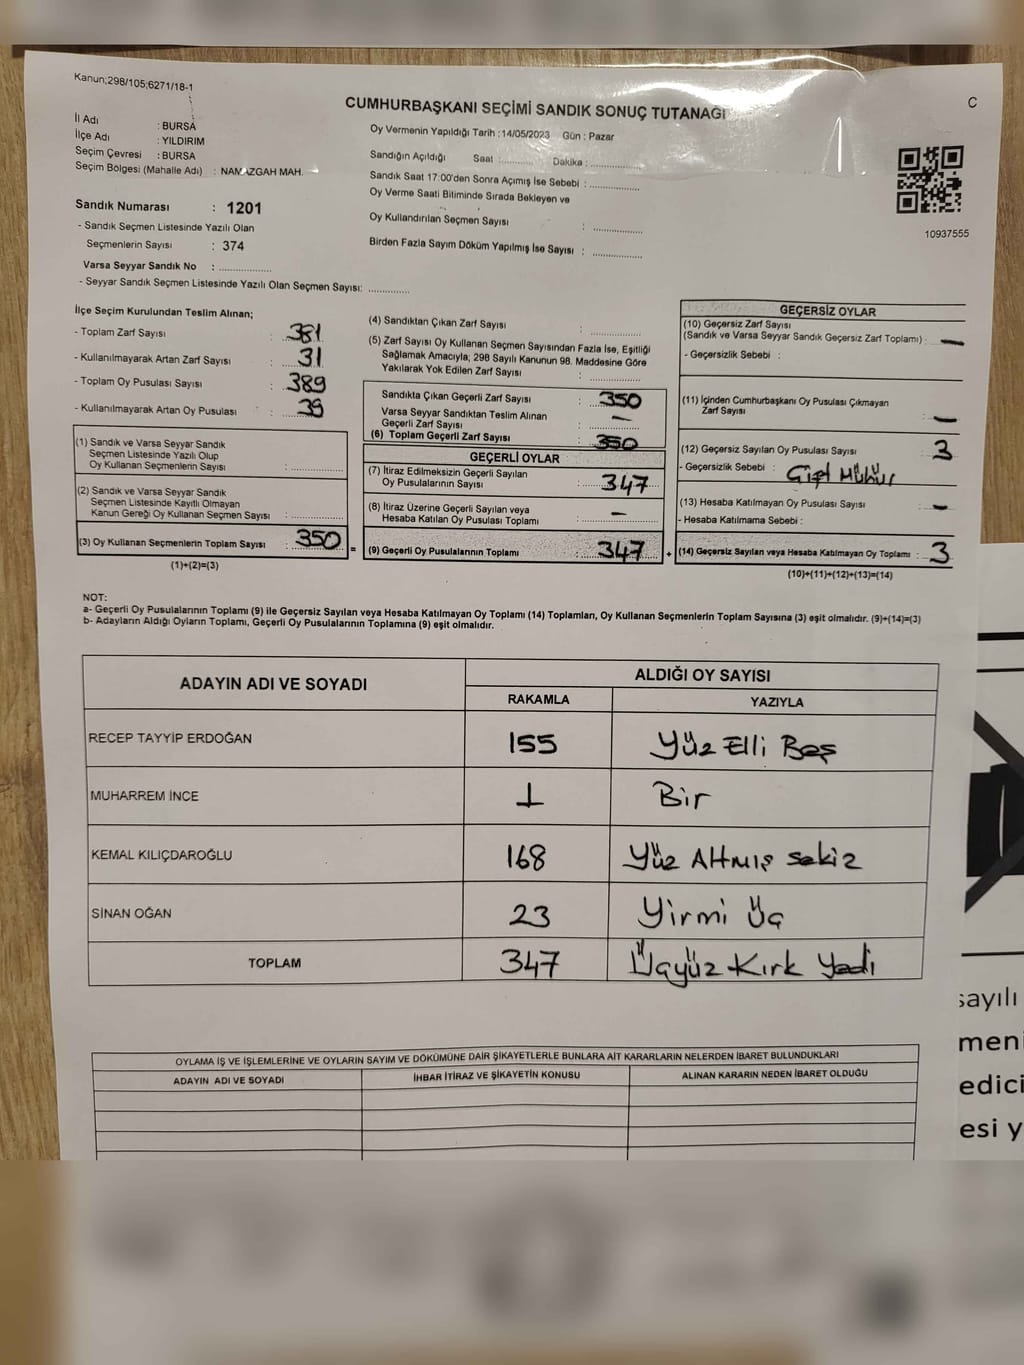 Kanun;298/105;6271/18-1
CUMHURBAŞKANI SEÇİMİ SANDIK SONUÇ TUTANAĞI
C
İl Adı : BURSA
İlçe Adı : YILDIRIM
Seçim Çevresi : BURSA
Seçim Bölgesi (Mahalle Adı) : NAMAZGAH MAH.
Sandık Numarası : 1201
- Sandık Seçmen Listesinde Yazılı Olan
Seçmenlerin Sayısı : 374
Varsa Seyyar Sandık No : ................
- Seyyar Sandık Seçmen Listesinde Yazılı Olan Seçmen Sayısı: ............
Oy Vermenin Yapıldığı Tarih :14/05/2023 Gün : Pazar
Sandığın Açıldığı Saat :........... Dakika : ................
Sandık Saat 17:00'den Sonra Açımış İse Sebebi : ................
Oy Verme Saati Bitiminde Sırada Bekleyen ve
Oy Kullandırılan Seçmen Sayısı : ................
Birden Fazla Sayım Döküm Yapılmış İse Sayısı : ................
10937555
İlçe Seçim Kurulundan Teslim Alınan;
- Toplam Zarf Sayısı : 381
- Kullanılmayarak Artan Zarf Sayısı : 31
- Toplam Oy Pusulası Sayısı : 389
- Kullanılmayarak Artan Oy Pusulası : 39
(1) Sandık ve Varsa Seyyar Sandık
Seçmen Listesinde Yazılı Olup
Oy Kullanan Seçmenlerin Sayısı : ................
(2) Sandık ve Varsa Seyyar Sandık
Seçmen Listesinde Kayıtlı Olmayan
Kanun Gereği Oy Kullanan Seçmen Sayısı : ................
(3) Oy Kullanan Seçmenlerin Toplam Sayısı : 350 =
(1)+(2)=(3)
(4) Sandıktan Çıkan Zarf Sayısı : ................
(5) Zarf Sayısı Oy Kullanan Seçmen Sayısından Fazla İse, Eşitliği
Sağlamak Amacıyla; 298 Sayılı Kanunun 98. Maddesine Göre
Yakılarak Yok Edilen Zarf Sayısı : ................
Sandıkta Çıkan Geçerli Zarf Sayısı : 350
Varsa Seyyar Sandıktan Teslim Alınan
Geçerli Zarf Sayısı : –
(6) Toplam Geçerli Zarf Sayısı : 350
GEÇERLİ OYLAR
(7) İtiraz Edilmeksizin Geçerli Sayılan
Oy Pusulalarının Sayısı : 347
(8) İtiraz Üzerine Geçerli Sayılan veya
Hesaba Katılan Oy Pusulası Toplamı : –
(9) Geçerli Oy Pusulalarının Toplamı : 347 +
GEÇERSİZ OYLAR
(10) Geçersiz Zarf Sayısı
(Sandık ve Varsa Seyyar Sandık Geçersiz Zarf Toplamı) : –
- Geçersizlik Sebebi :
(11) İçinden Cumhurbaşkanı Oy Pusulası Çıkmayan
Zarf Sayısı : –
(12) Geçersiz Sayılan Oy Pusulası Sayısı : 3
- Geçersizlik Sebebi : Çift Mühür
(13) Hesaba Katılmayan Oy Pusulası Sayısı : –
- Hesaba Katılmama Sebebi :
(14) Geçersiz Sayılan veya Hesaba Katılmayan Oy Toplamı : 3
(10)+(11)+(12)+(13)=(14)
NOT:
a- Geçerli Oy Pusulalarının Toplamı (9) ile Geçersiz Sayılan veya Hesaba Katılmayan Oy Toplamı (14) Toplamları, Oy Kullanan Seçmenlerin Toplam Sayısına (3) eşit olmalıdır. (9)+(14)=(3)
b- Adayların Aldığı Oyların Toplamı, Geçerli Oy Pusulalarının Toplamına (9) eşit olmalıdır.
ADAYIN ADI VE SOYADI ALDIĞI OY SAYISI
RAKAMLA YAZIYLA
RECEP TAYYİP ERDOĞAN 155 Yüz Elli Beş
MUHARREM İNCE 1 Bir
KEMAL KILIÇDAROĞLU 168 Yüz Altmış Sekiz
SİNAN OĞAN 23 Yirmi Üç
TOPLAM 347 Üçyüz Kırk Yedi
OYLAMA İŞ VE İŞLEMLERİNE VE OYLARIN SAYIM VE DÖKÜMÜNE DAİR ŞİKAYETLERLE BUNLARA AİT KARARLARIN NELERDEN İBARET BULUNDUKLARI
ADAYIN ADI VE SOYADI İHBAR İTİRAZ VE ŞİKAYETİN KONUSU ALINAN KARARIN NEDEN İBARET OLDUĞU
sayılı
meni
edici
esi y